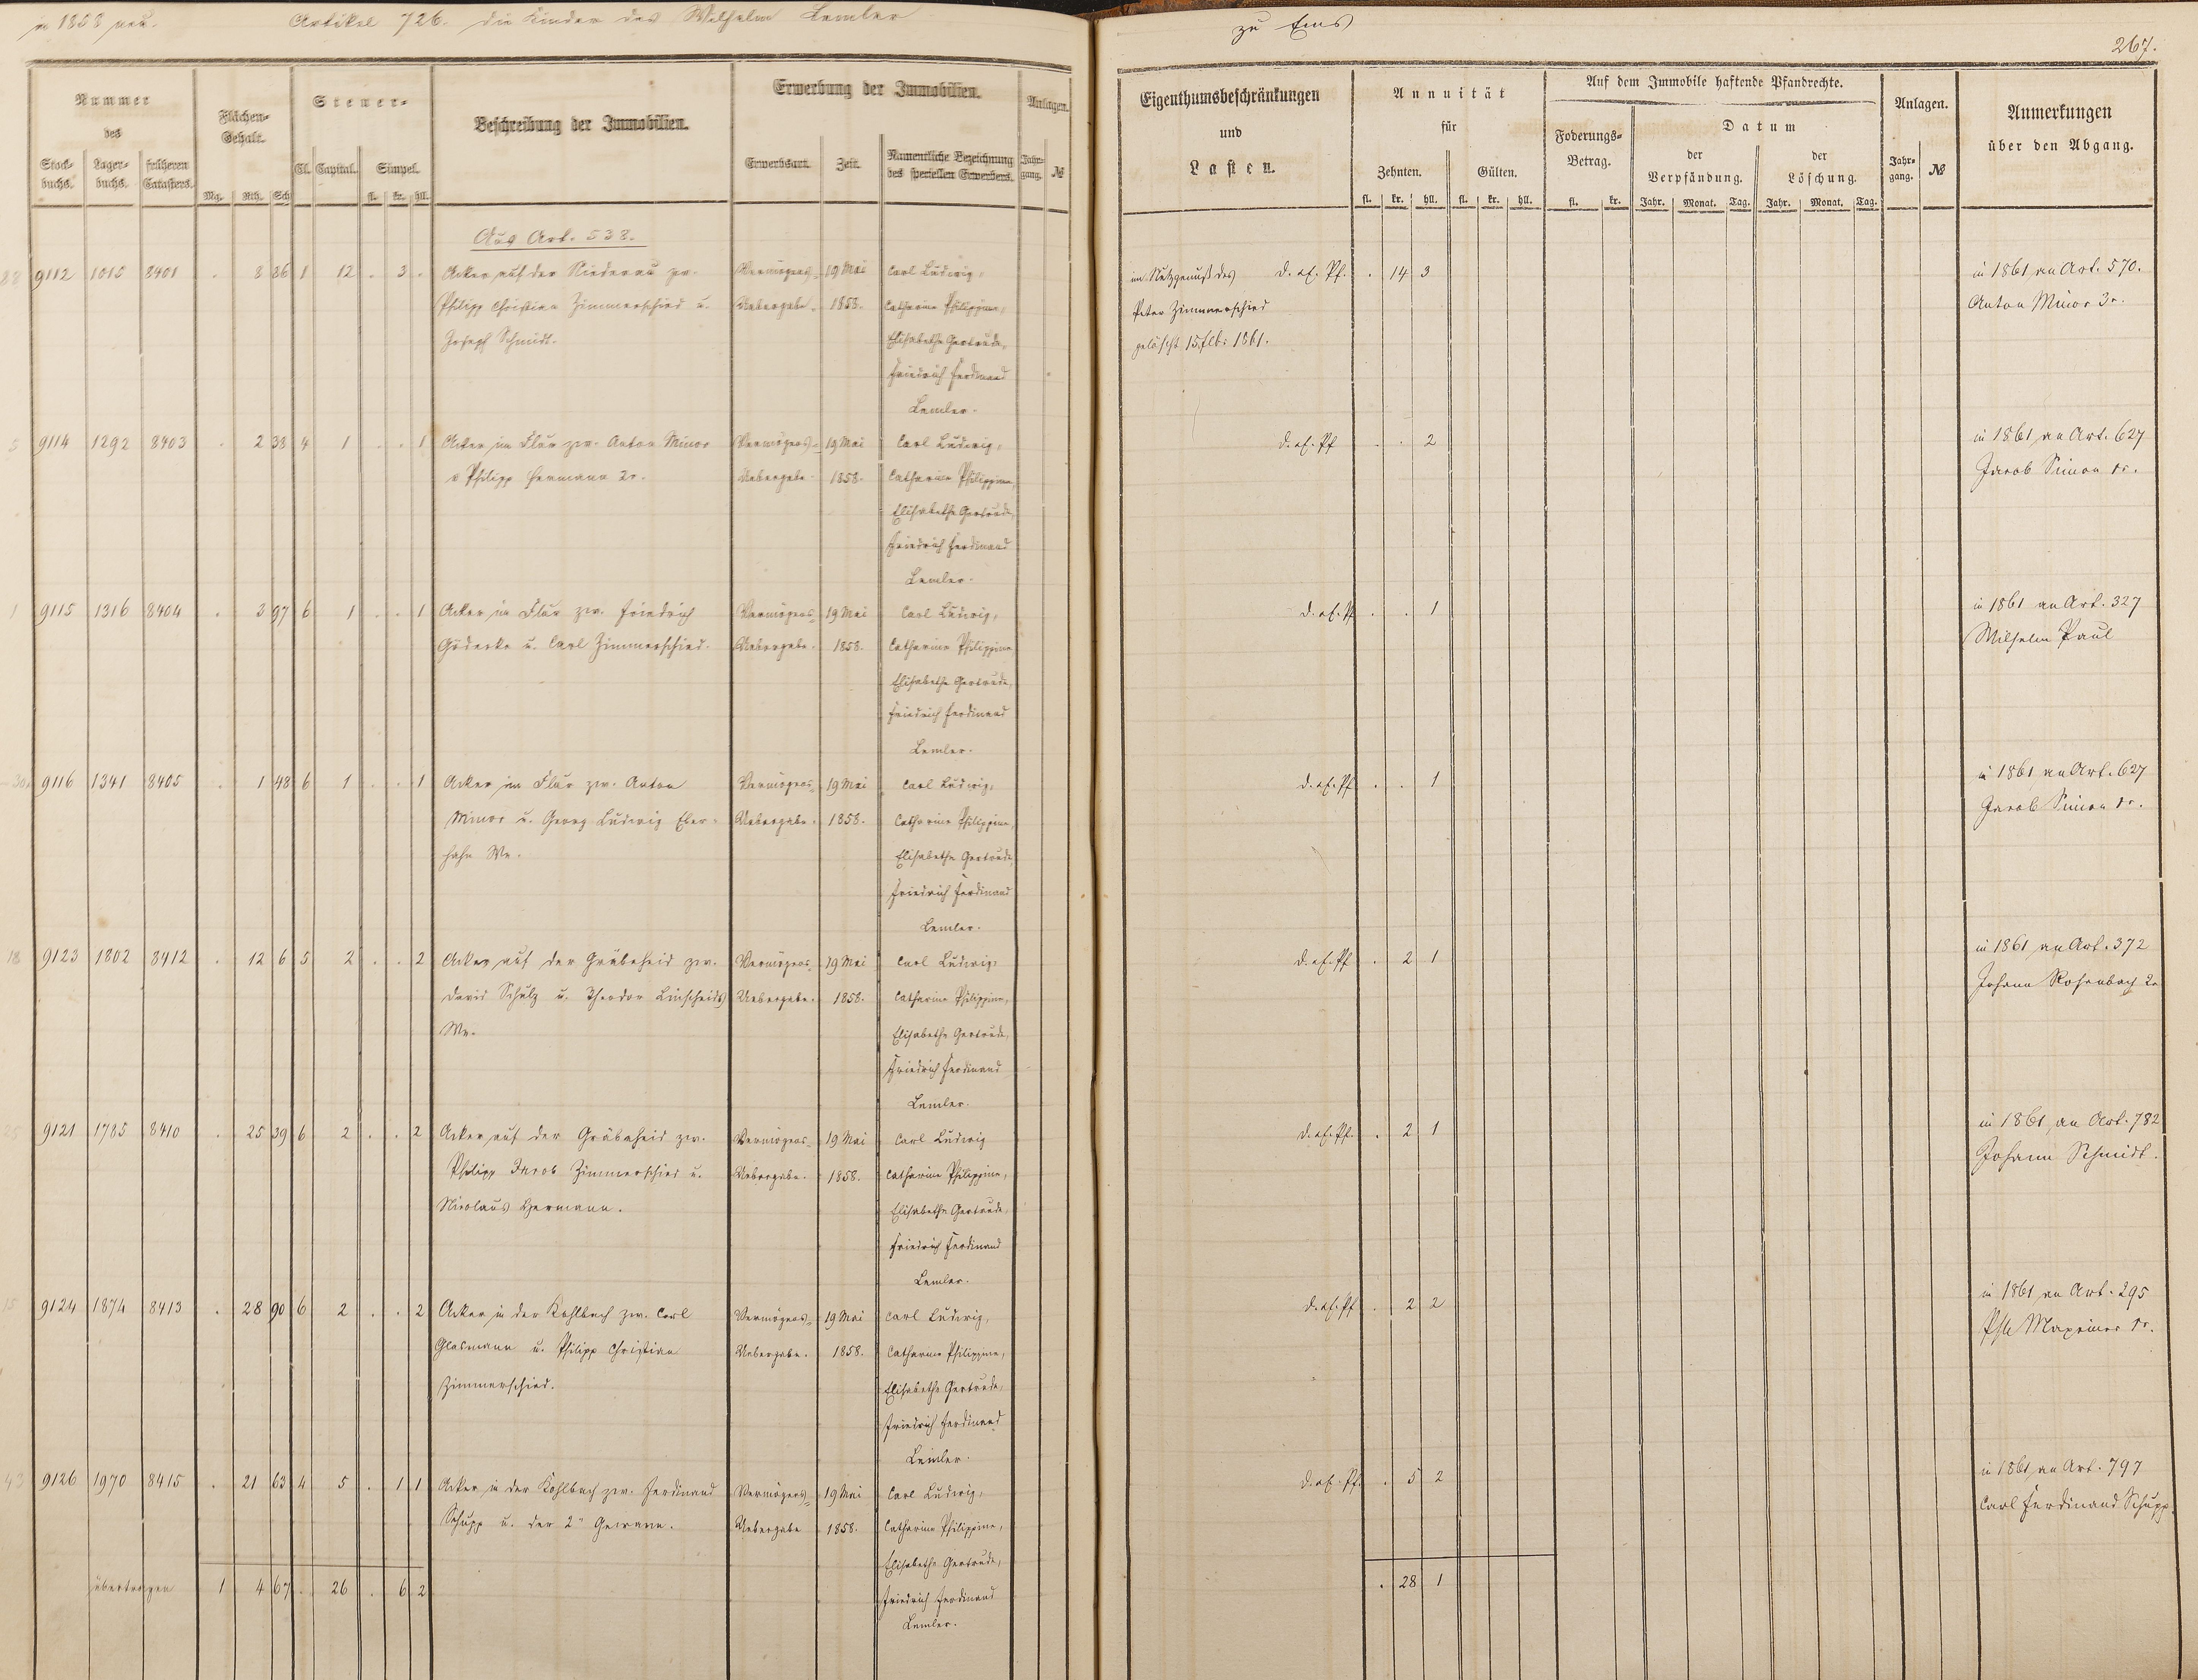 in 1858 neu. Artikel 726. die Kinder des Wilhelm Lemler zu Ems
267.
Nummer des
Stock-buchs. Lager-buchs. früheren Catasters.
Flächen-Gehalt.
Mg. Rth. Sch
Steuer-
Cl. Capital. Simpel.
fl. kr. hll.
Beschreibung der Immobilien.
Erwerbung der Immobilien.
Erwerbsart. Zeit. Namentliche Bezeichnung des speciellen Erwerbers.
Anlagen.
Jahr-gang. №
Eigenthumsbeschränkungen
und
Lasten.
Annuität
für
Zehnten. Gülten.
fl. kr. hll. fl. kr. hll.
Auf dem Immobile haftende Pfandrechte.
Foderungs-Betrag.
fl. kr.
Datum
der Verpfändung. der Löschung.
Jahr. Monat. Tag. Jahr. Monat. Tag.
Anlagen.
Jahr-gang. №
Anmerkungen
über den Abgang.
Aus Art. 538.
28 9112 1015 8401 . 8 36 1 12 . 3 . Acker auf der Niederau zw. Vermögens- 19 Mai Carl Ludwig, im Nutzgenuß des d. ef. Pf. . 14 3 in 1861 an Art. 570.
Philipp Christian Zimmerschied u. Uebergabe. 1858. Catharine Philippine, Peter Zimmerschied Anton Minor 3r.
Joseph Schmidt. Elisabethe Gertrude, gelöscht 15. Feb: 1861.
Friedrich Ferdinand
Lemler.
5 9114 1292 8403 . 2 38 4 1 . . 1 Acker im Flur zw. Anton Minor Vermögens- 19 Mai Carl Ludwig, d. ef. Pf . . 2 in 1861 an Art. 627
u Philipp Hermann 2r. Uebergabe. 1858. Catharine Philippine, Jacob Simon 1r.
Elisabethe Gertrude,
Friedrich Ferdinand
Lemler.
1 9115 1316 8404 . 3 97 6 1 . . 1 Acker im Flur zw. Friedrich Vermögens- 19 Mai Carl Ludwig, d. ef. Pf . . 1 in 1861 an Art. 327
Gödecke u. Carl Zimmerschied. Uebergabe. 1858. Catharine Philippine Wilhelm Paul
Elisabethe Gertrude,
Friedrich Ferdinand
Lemler.
30 9116 1341 8405 . 1 48 6 1 . . 1 Acker im Flur zw. Anton Vermögens- 19 Mai Carl Ludwig, d. ef. Pf . . 1 in 1861 an Art. 627
Minor u. Georg Ludwig Eber- Uebergabe. 1858. Catharine Philippine, Jacob Simon 1r.
hahn We. Elisabethe Gertrude,
Friedrich Ferdinand
Lemler.
18 9123 1802 8412 . 12 6 5 2 . . 2 Acker auf der Grübeheid zw. Vermögens- 19 Mai Carl Ludwig, d. ef. Pf . 2 1 in 1861 an Art. 372
David Schulz u. Theodor Linscheids Uebergabe. 1858. Catharine Philippine, Johann Rosenbach 2r
We. Elisabethe Gertrude,
Friedrich Ferdinand
Lemler.
25 9121 1785 8410 . 25 39 6 2 . . 2 Acker auf der Grübeheid zw. Vermögens- 19 Mai Carl Ludwig d. ef. Pf. . 2 1 in 1861, an Art. 782
Philipp Jacob Zimmerschied u. Uebergabe. 1858. Catharine Philippine, Johann Schmidt.
Nicolaus Hermann. Elisabethe Gertrude,
Friedrich Ferdinand
Lemler.
15 9124 1874 8413 . 28 90 6 2 . . 2 Acker in der Kohlbach zw. Carl Vermögens- 19 Mai Carl Ludwig, d. ef. Pf . 2 2 in 1861 an Art. 295
Glasmann u. Philipp Christian Uebergabe. 1858. Catharine Philippine, Maxeiner 1r.
Zimmerschied. Elisabethe Gertrude,
Friedrich Ferdinand
Lemler.
43 9126 1970 8415 . 21 63 4 5 . 1 1 Acker in der Kohlbach zw. Ferdinand Vermögens- 19 Mai Carl Ludwig, d. ef. Pf. . 5 2 in 1861 an Art. 797
Schupp u. der 2n Gewann. Uebergabe 1858. Catharine Philippine, Carl Ferdinand Schupp.
Elisabethe Gertrude,
übertragen 1 4 67 . 26 . 6 2 Friedrich Ferdinand . 28 1
Lemler.